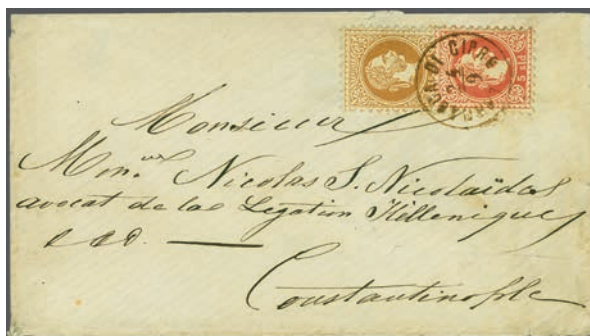 DI CIPRO
5 sld
Monsieur
Mon.ʳ Nicolas S. Nicolaïdes
avocat de la Légation Hellénique
Constantinople